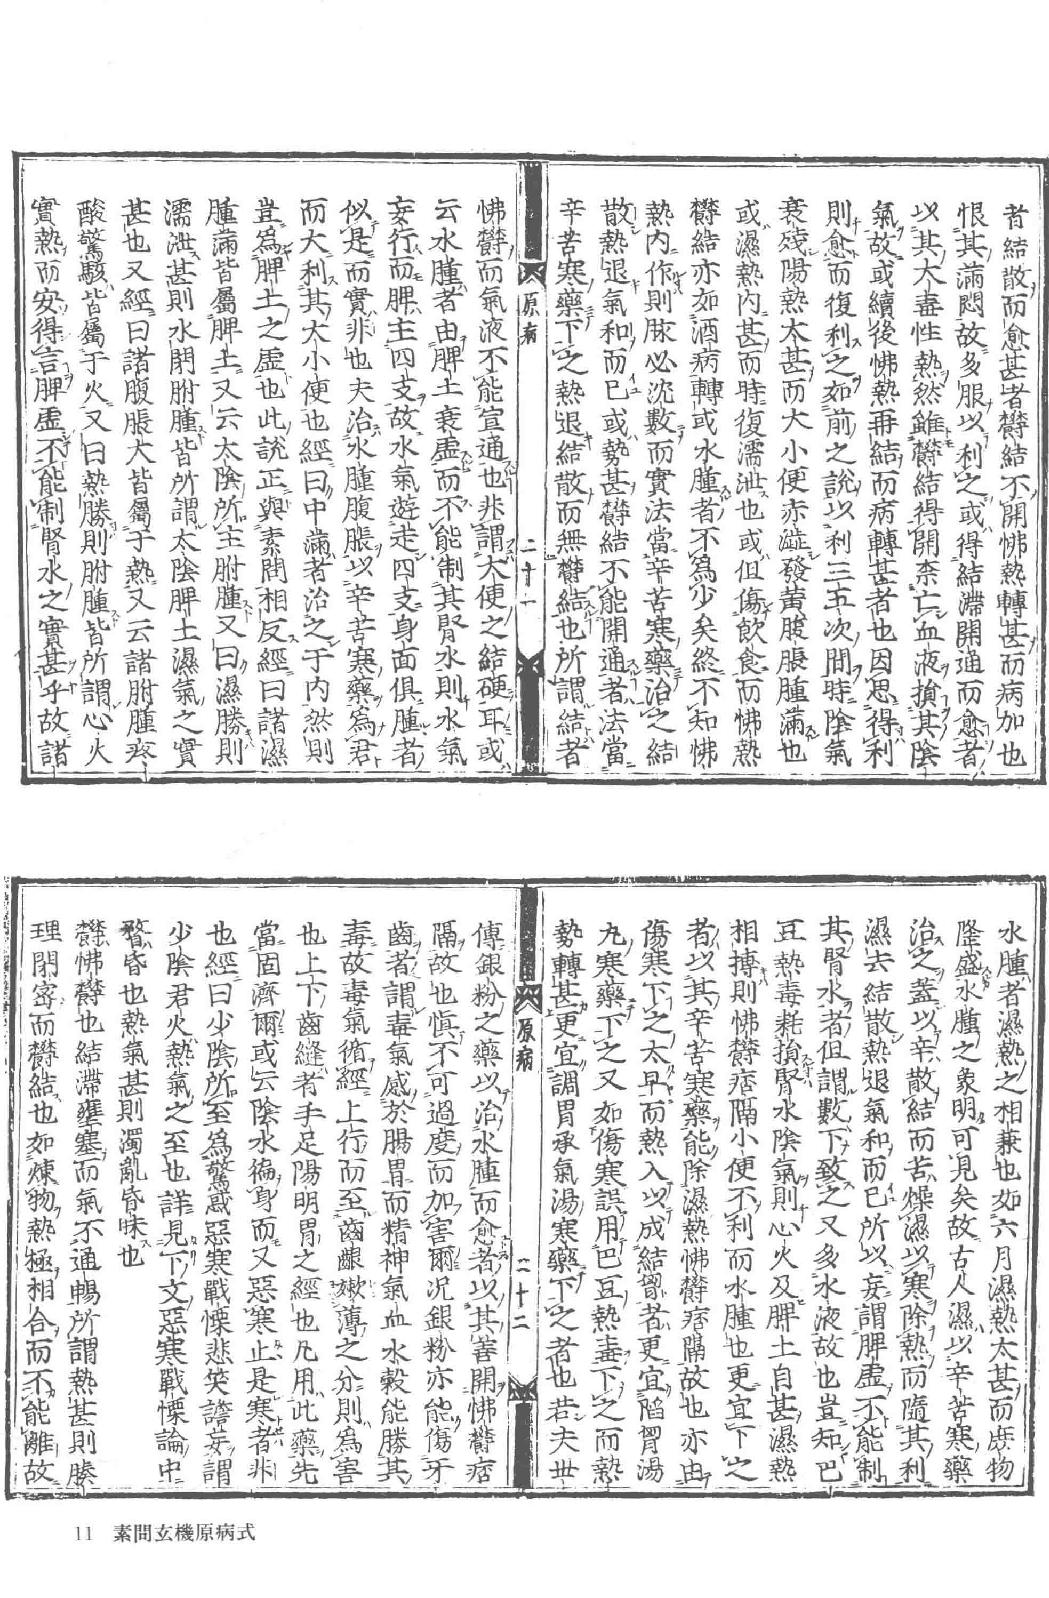 者結散而愈甚者鬱結不開怫熱轉甚而病加也
恨其滿悶故多服以利之或得結滯開通而愈者
以其大毒性熱然雖鬱結得開柰亡血液損其陰
氣故或續後怫熱再結而病轉甚者也因思得利
則愈而復利之如前之說以利三五次間時陰氣
衰殘陽熱太甚而大小便赤澁發黃腹脹腫滿也
或濕熱內甚而時復濡泄也或但傷飲食而怫熱
鬱結亦如酒病轉或水腫者不爲少矣終不知怫
熱內作則脉必沈數而實法當辛苦寒藥治之結
散熱退氣和而已或勢甚鬱結不能開通者法當
辛苦寒藥下之熱退結散而無鬱結也所謂結者
原病
二十一
怫鬱而氣液不能宣通也非謂大便之結硬耳或
云水腫者由脾土衰虛而不能制其腎水則水氣
妄行而脾主四支故水氣遊走四支身面俱腫者
似是而實非也夫治水腫腹脹以辛苦寒藥爲君
而大利其大小便也經曰中滿者治之于內然則
豈爲脾土之虛也此說正與素問相反經曰諸濕
腫滿皆屬脾土又云太陰所主胕腫又曰濕勝則
濡泄甚則水閉胕腫皆所謂太陰脾土濕氣之實
甚也又經曰諸腹脹大皆屬于熱又云諸胕腫疼
酸驚駭皆屬于火又曰熱勝則胕腫皆所謂心火
實熱而安得言脾虛不能制腎水之實甚乎故諸
水腫者濕熱之相兼也如六月濕熱太甚而庶物
隆盛水腫之象明可見矣故古人濕以辛苦寒藥
治之蓋以辛散結而苦燥濕以寒除熱而隨其利
濕去結散熱退氣和而已所以妄謂脾虛不能制
其腎水者但謂數下致之又多水液故也豈知巴
豆熱毒耗損腎水陰氣則心火及脾土自甚濕熱
相搏則怫鬱痞隔小便不利而水腫也更宜下之
者以其辛苦寒藥能除濕熱怫鬱痞隔故也亦由
傷寒下之太早而熱入以成結胷者更宜陷胷湯
丸寒藥下之又如傷寒誤用巴豆熱毒下之而熱
勢轉甚更宜調胃承氣湯寒藥下之者也若夫世
原病
二十二
傳銀粉之藥以治水腫而愈者以其善開怫鬱痞
隔故也愼不可過度而加害爾况銀粉亦能傷牙
齒者謂毒氣感於腸胃而精神氣血水穀能勝其
毒故毒氣循經上行而至齒齦嫩薄之分則爲害
也上下齒縫者手足陽明胃之經也凡用此藥先
當固濟爾或云陰水徧身而又惡寒止是寒者非
也經曰少陰所至爲驚惑惡寒戰慄悲笑譫妄謂
少陰君火熱氣之至也詳見下文惡寒戰慄論中
瞀昏也熱氣甚則濁亂昏昧也
鬱怫鬱也結滯壅塞而氣不通暢所謂熱甚則腠
理閉密而鬱結也如煉物熱極相合而不能離故
11 素問玄機原病式